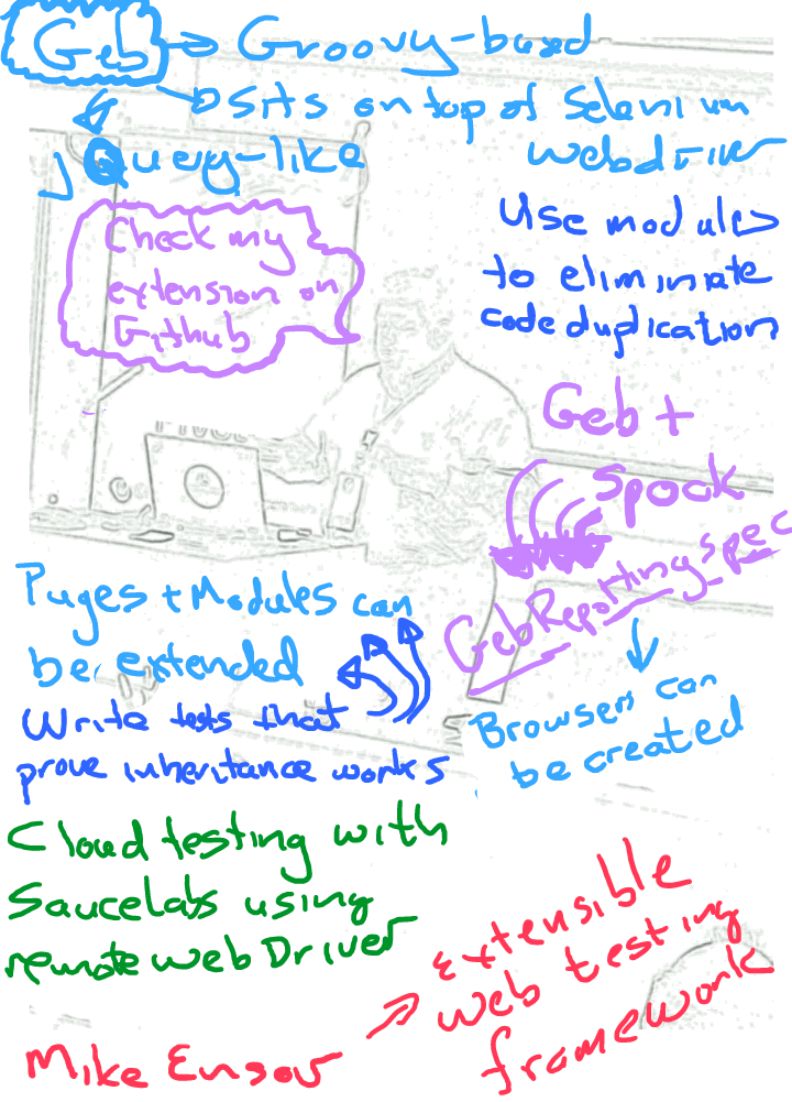 Geb → Groovy-based
→ Sits on top of Selenium
webdriver
jQuery-like
Check my
extension on
Github
Use modules
to eliminate
code duplication
Geb +
Spock
GebReportingSpec
Pages + Modules can
be extended
Write tests that
prove inheritance works
Browsers can
be created
Cloud testing with
Saucelabs using
remote webDriver
Mike Ensor
→ extensible
web testing
framework